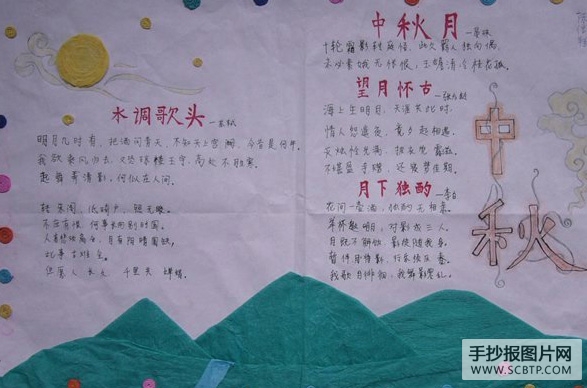 水调歌头
—苏轼
明月几时有,把酒问青天,不知天上宫阙,今昔是何年。
我欲乘风归去,又恐琼楼玉宇,高处不胜寒。
起舞弄清影,何似在人间。
转朱阁,低绮户,照无眠。
不应有恨,何事长向别时圆。
人有悲欢离合,月有阴晴圆缺,
此事古难全。
但愿人长久,千里共婵娟。
中秋月
—晏殊
十轮霜影转庭梧,此夕羁人独向隅。
未必素娥无怅恨,玉蟾清冷桂花孤。
望月怀古
—张九龄
海上生明月,天涯共此时。
情人怨遥夜,竟夕起相思。
灭烛怜光满,披衣觉露滋。
不堪盈手赠,还寝梦佳期。
月下独酌
—李白
花间一壶酒,独酌无相亲。
举杯邀明月,对影成三人。
月既不解饮,影徒随我身。
暂伴月将影,行乐须及春。
我歌月徘徊,我舞影零乱。
中秋
手抄报图片网
WWW.SCBTP.COM